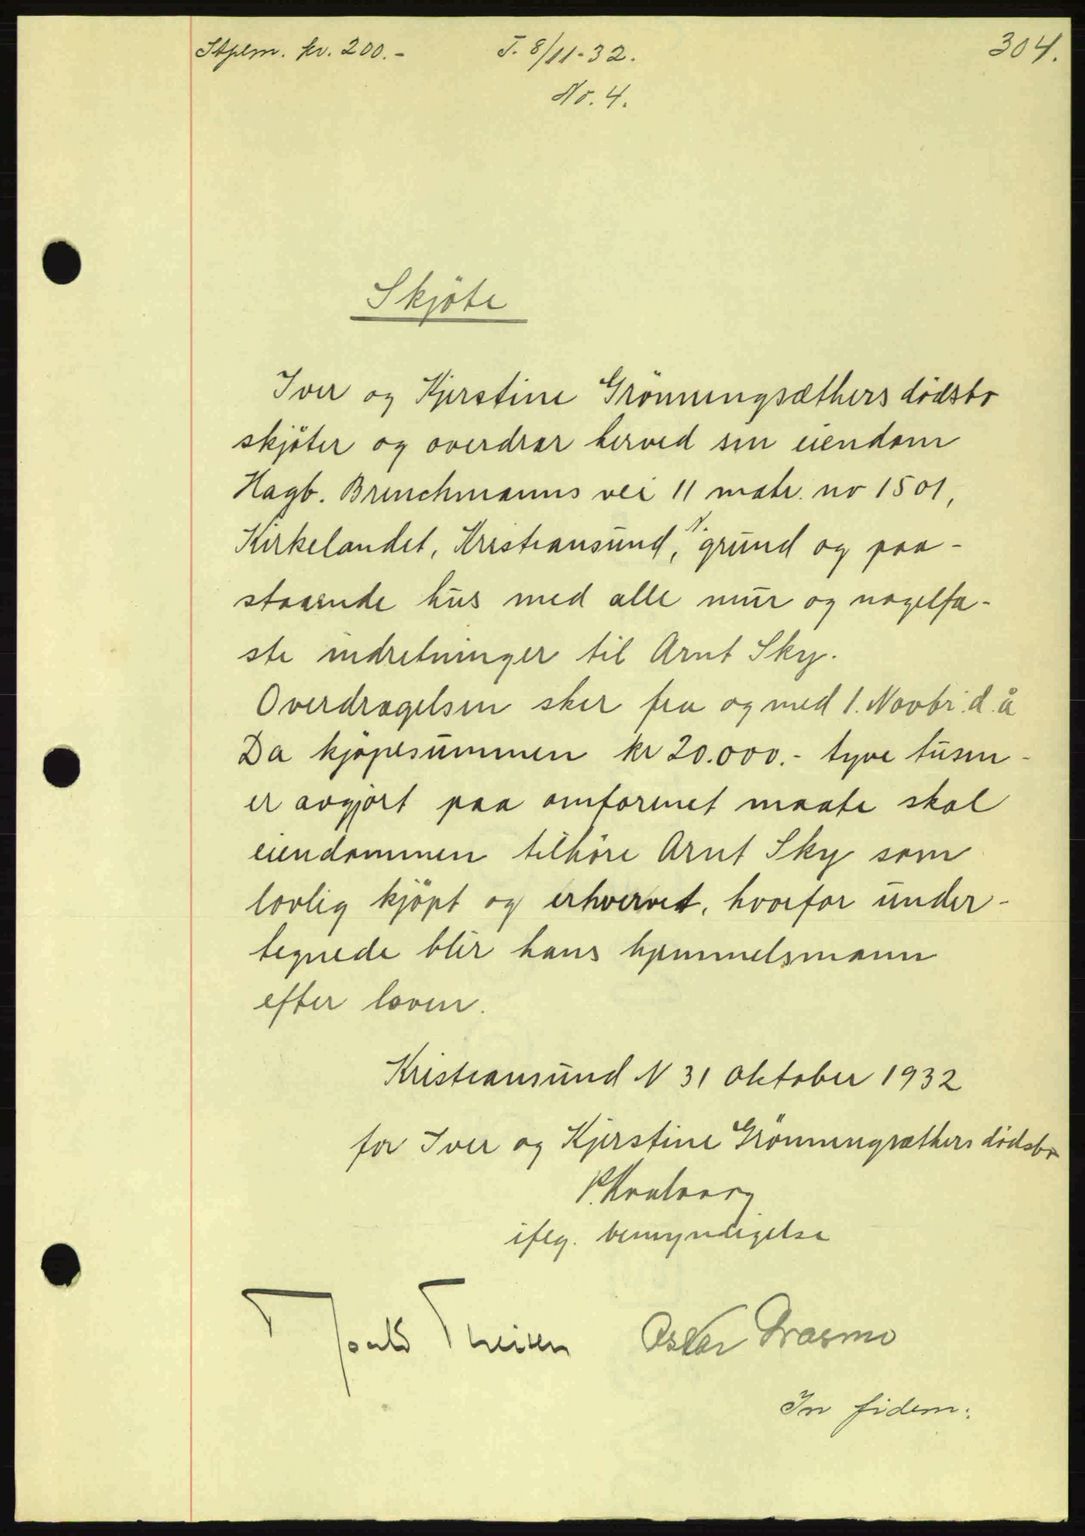 Stplm. kr. 200.-
T. 8/11-32.
304.
No. 4.
Skjöte
Iver og Kjerstine Grönningsæthers dödsbo
skjöter og overdrar herved sin eiendom
Hagb. Brinchmanns vei 11 matr. no 1501,
Kirkelandet, Kristiansund, N. grund og paa-
staaende hus med alle mur og nagelfa-
ste indretninger til Arnt Sky.
Overdragelsen sker fra og med 1. Novbr. d. å
Da kjöpesummen kr 20.000.- tyve tusen -
er avgjort paa omforenet maate skal
eiendommen tilhöre Arnt Sky som
lovlig kjöpt og erhvervet, hvorfor under-
tegnede blir hans hjemmelsmann
efter loven.
Kristiansund N 31 Oktober 1932
for Iver og Kjerstine Grönningsæthers dödsbo
iflg. bemyndigelse
Oskar
In fidem: